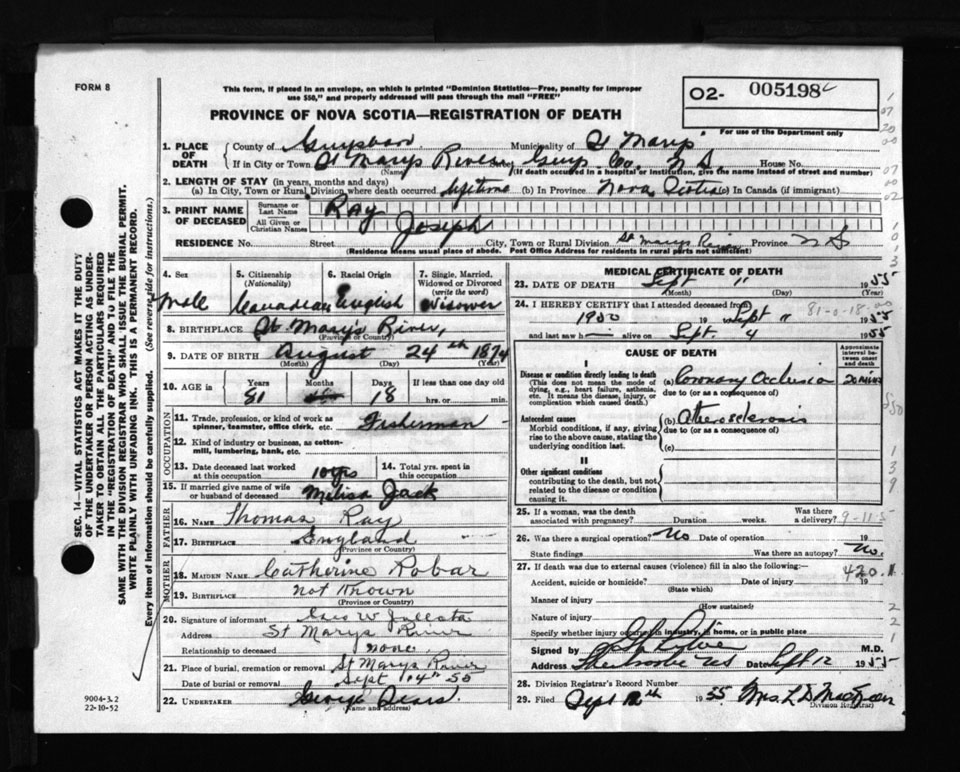 FORM 8
This form, if placed in an envelope, on which is printed "Dominion Statistics—Free, penalty for improper
use $50," and properly addressed will pass through the mail "FREE"
O2- 005198
For use of the Department only
PROVINCE OF NOVA SCOTIA—REGISTRATION OF DEATH
SEC. 14—VITAL STATISTICS ACT MAKES IT THE DUTY
OF THE UNDERTAKER OR PERSON ACTING AS UNDER-
TAKER TO OBTAIN ALL THE PARTICULARS REQUIRED
IN THE "REGISTRATION OF DEATH" AND TO FILE THE
SAME WITH THE DIVISION REGISTRAR WHO SHALL ISSUE THE BURIAL PERMIT.
WRITE PLAINLY WITH UNFADING INK. THIS IS A PERMANENT RECORD.
Every item of information should be carefully supplied. (See reverse side for instructions.)
1. PLACE OF DEATH
County of Guysboro Municipality of St Marys
If in City or Town St Marys River Guys. Co. N S. House No.
(Name) (If death occurred in a hospital or institution, give the name instead of street and number)
2. LENGTH OF STAY (in years, months and days)
(a) In City, Town or Rural Division where death occurred lifetime (b) In Province Nova Scotia (c) In Canada (if immigrant)
3. PRINT NAME OF DECEASED
Surname or Last Name RAY
All Given or Christian Names Joseph
RESIDENCE No. Street City, Town or Rural Division St Marys River Province N S
(Residence Means usual place of abode. Post Office Address for residents in rural parts not sufficient)
4. Sex Male
5. Citizenship (Nationality) Canadian
6. Racial Origin English
7. Single, Married, Widowed or Divorced (write the word) Widower
8. BIRTHPLACE St Marys River,
(Province or Country)
9. DATE OF BIRTH August 24th 1874
(Month) (Day) (Year)
10. AGE in Years 81 Months Days 18 If less than one day old
hrs. or min.
OCCUPATION
11. Trade, profession, or kind of work as spinner, teamster, office clerk, etc. Fisherman
12. Kind of industry or business, as cotton-mill, lumbering, bank, etc.
13. Date deceased last worked at this occupation 10 yrs
14. Total yrs. spent in this occupation
15. If married give name of wife or husband of deceased Melisa Jack
FATHER
16. NAME Thomas Ray
17. BIRTHPLACE England
(Province or Country)
MOTHER
18. MAIDEN NAME Catherine Robar
19. BIRTHPLACE not Known
(Province or Country)
20. Signature of informant Geo W
Address St Marys River
Relationship to deceased none.
21. Place of burial, cremation or removal St Marys River
Date of burial or removal Sept 14th 55
22. UNDERTAKER George
(Name and address)
9004-3.2
22-10-52
MEDICAL CERTIFICATE OF DEATH
23. DATE OF DEATH Sept 11 1955
(Month) (Day) (Year)
24. I HEREBY CERTIFY that I attended deceased from
1950 19 Sept 11 1955
81-0-18
and last saw h alive on Sept. 4 1955
CAUSE OF DEATH
Approximate interval between onset and death
I
Disease or condition directly leading to death (a) Coronary Occlusion 20 mins
(This does not mean the mode of dying, e.g., heart failure, asthenia, etc. It means the disease, injury, or complication which caused death.)
due to (or as a consequence of)
Antecedent causes (b) Atherosclerosis
Morbid conditions, if any, giving rise to the above cause, stating the underlying condition last.
due to (or as a consequence of)
(c)
II
Other significant conditions
contributing to the death, but not related to the disease or condition causing it.
25. If a woman, was the death associated with pregnancy? Duration weeks. Was there a delivery?
26. Was there a surgical operation? No Date of operation 19
State findings Was there an autopsy? No.
27. If death was due to external causes (violence) fill in also the following:—
420.1
Accident, suicide or homicide? Date of injury 19
(State which)
Manner of injury
(How sustained)
Nature of injury
Specify whether injury occurred in industry, in home, or in public place
Signed by M.D.
Address Sherbrooke NS Date Sept 12 1955
28. Division Registrar's Record Number
29. Filed Sept 12th 1955 Mrs. L D
Division Registrar)